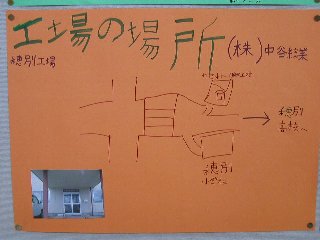 工場の場所
(株)中谷綜業
穂別工場
→穂別
高校へ
穂別